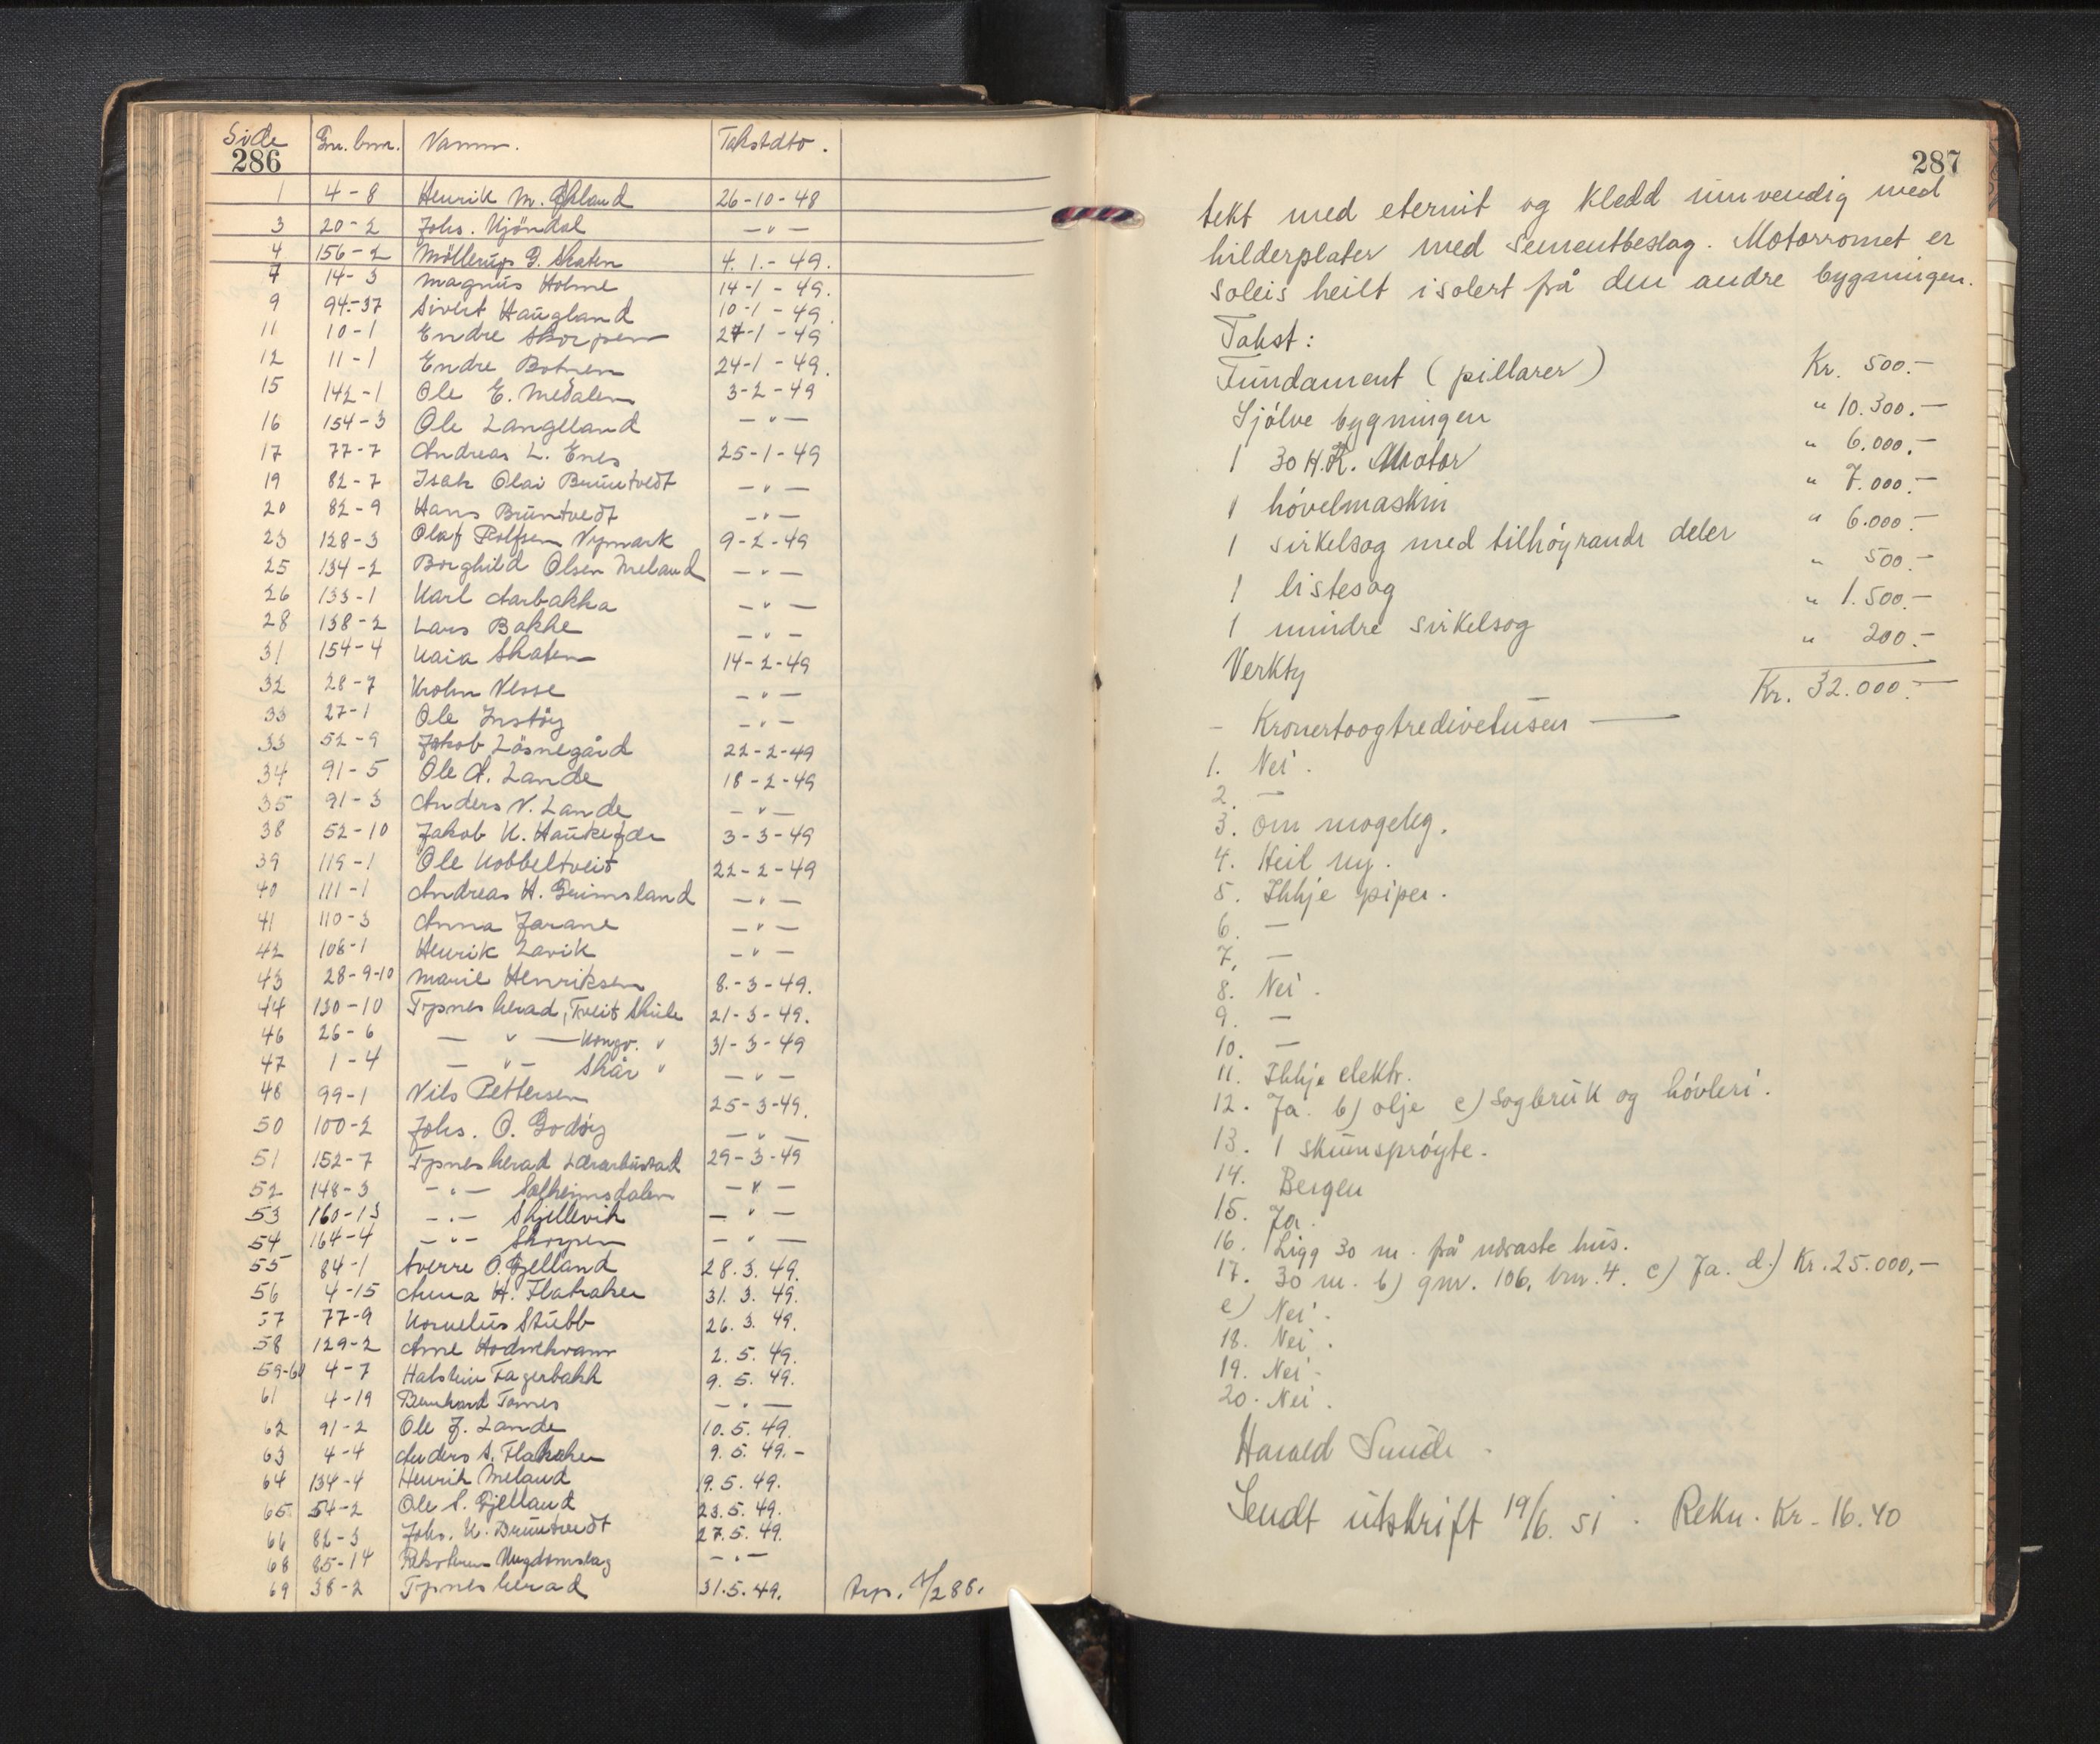 Side Gnr. bnr. Namn. Takstdto.
286
1 4-8 Henrik M. Økland 26-10-48
3 20-2 Johs. Njöndal — " —
4 156-2 Möllerup G. Skaten 4. 1. - 49.
7 14-3 Magnus Holme 14-1 - 49.
9 94-37 Sivert Haugland 10-1 - 49.
11 10-1 Endre Skorpen 24-1 - 49
12 11-1 Endre Botnen 24-1 - 49.
15 142-1 Ole E. Medalen 3-2-49
16 154-3 Ole Langeland — " —
17 77-7 Andreas L. Enes 25-1-49
19 82-7 Isak Olai Bruntvedt — " —
20 82-9 Hans Bruntvedt — " —
23 128-3 Olaf Rolfsen Nymark 9-2-49
25 134-2 Borghild Olsen Meland — " —
26 133-1 Karl Aarbakka — " —
28 138-2 Lars Bakke — " —
31 154-4 Kaia Skaten 14-2-49
32 28-7 Krohn Nesse — " —
33 27-1 Ole Instöy — " —
33 52-9 Jakob Lösnegård 22-2-49
34 91-5 Ole A. Lande 18-2-49
35 91-3 Anders N. Lande — " —
38 52-10 Jakob K. 3-3-49
39 119-1 Ole Kobbeltveit 22-2-49
40 111-1 Andreas H. Grimsland — " —
41 110-3 Anna Farane — " —
42 108-1 Henrik Lavik — " —
43 28-9-10 Marie Henriksen 8.-3-49.
44 130-10 Tysnes herad, Tveit Skule 21-3-49.
46 26-6 — " — Kongv. " 31-3-49
47 1-4 — " — Skår " — " —
48 99-1 Nils Pettersen 25-3-49.
50 100-2 Johs. O. Godöy — " —
51 152-7 Tysnes herad Lærarbustad 29-3-49
52 148-3 — " — Solheimsdalen — " —
53 160-13 — " — Skjellevik — " —
54 164-4 — " — Skorpen — " —
55 84-1 Sverre O. Gjelland 28.3.49.
56 4-15 Anna H. Flatraker 31. 3. 49.
57 77-9 Kornelius Stubb 26. 3. 49.
58 129-2 Arne Hodnekvam 2. 5. 49.
59-60 4-7 Halstein Fagerbakk 9. 5. 49.
61 4-19 Bernhard Tornes — " —
62 91-2 Ole J. Lande 10. 5. 49.
63 4-4 Anders A. Flatraker 9. 5. 49.-
64 134-4 Henrik Meland 19. 5. 49.
65 54-2 Ole S. Gjelland 23. 5. 49.
66 82-3 Johs. K. Bruntvedt 27. 5. 49.
68 85-14 Ungdomslag — " —
69 38-2 Tysnes herad 31. 5. 49. /288.
287
tekt med eternit og kledd innvendig med
hilderplater med sementbeslag. Motorromet er
soleis heilt isolert frå den andre bygningen.
Takst:
Fundament (pillarer) Kr. 500.-
Sjölve bygningen " 10.300.-
1 30 H.K. Motor " 6.000.-
1 hövelmaskin " 7.000.-
1 sirkelsag med tilhöyrande deler " 6.000.-
1 listesag " 500.-
1 mindre sirkelsog " 1.500.-
Verkty " 200.-
Kr. 32.000.-
- Kronertoogtredivetusen —
1. Nei.
2. —
3. Om mogeleg.
4. Heil ny.
5. Ikkje piper.
6. —
7. —
8. Nei.
9. —
10. —
11. Ikkje elektr.
12. Ja. b) olje c) sagbruk og hövleri.
13. 1 skumspröyte.
14. Bergen
15. Ja.
16. Ligg 30 m. frå næraste hus.
17. 30 m. b) gnr. 106, bnr. 4. c) Ja. d.) Kr. 25.000,-
e) Nei.
18. Nei.
19. Nei.
20. Nei.
Harald Sunde.
Sendt utskrift 19/6. 51. Rekn. Kr. 16.40